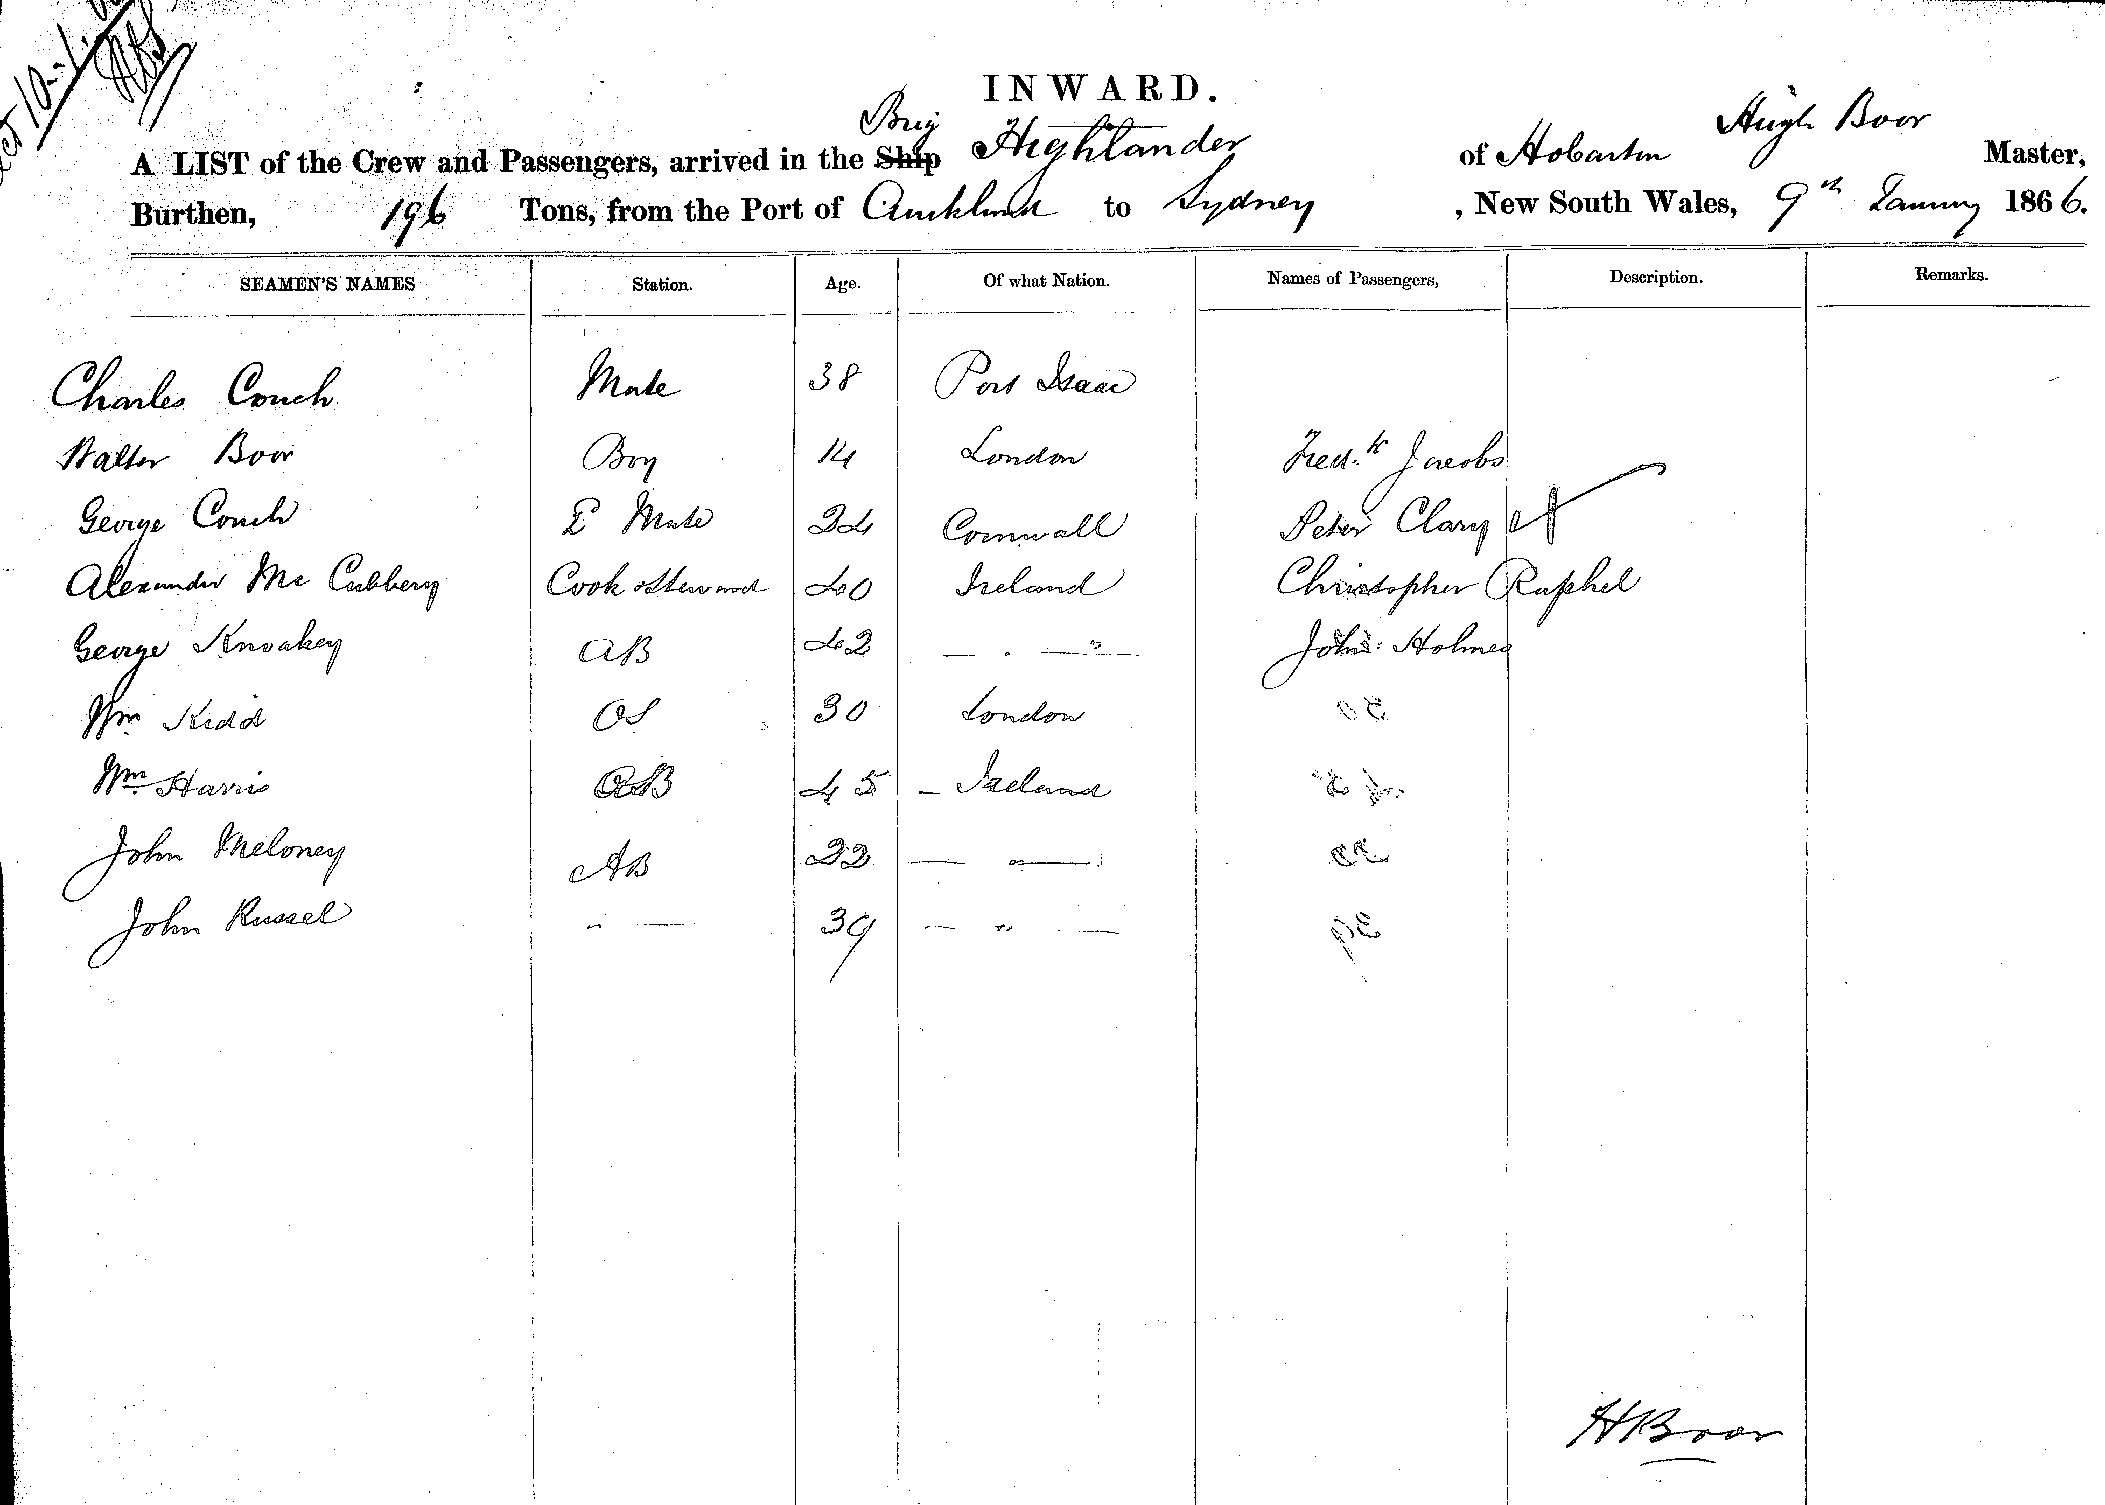 INWARD.
Brig Hugh Boor
A LIST of the Crew and Passengers, arrived in the Ship Highlander of Hobarton Master,
Burthen, 196 Tons, from the Port of Auckland to Sydney , New South Wales, 9th January 1866.
SEAMEN'S NAMES Station. Age. Of what Nation. Names of Passengers, Description. Remarks.
Charles Couch Mate 38 Port Isaac
Walter Boor Boy 14 London Fred.k Jacobs
George Couch Mate 24 Cornwall Peter Clary
Alexander Mc Cubbery Cook & Steward 40 Ireland Christopher Raphel
George Knoakey AB 42 — " — John Holmes
Wm Kidd OS 30 London
Wm Harris AB 45 – Ireland
John Meloney AB 22 — " —
John Russel " — 39 — " —
H Boor